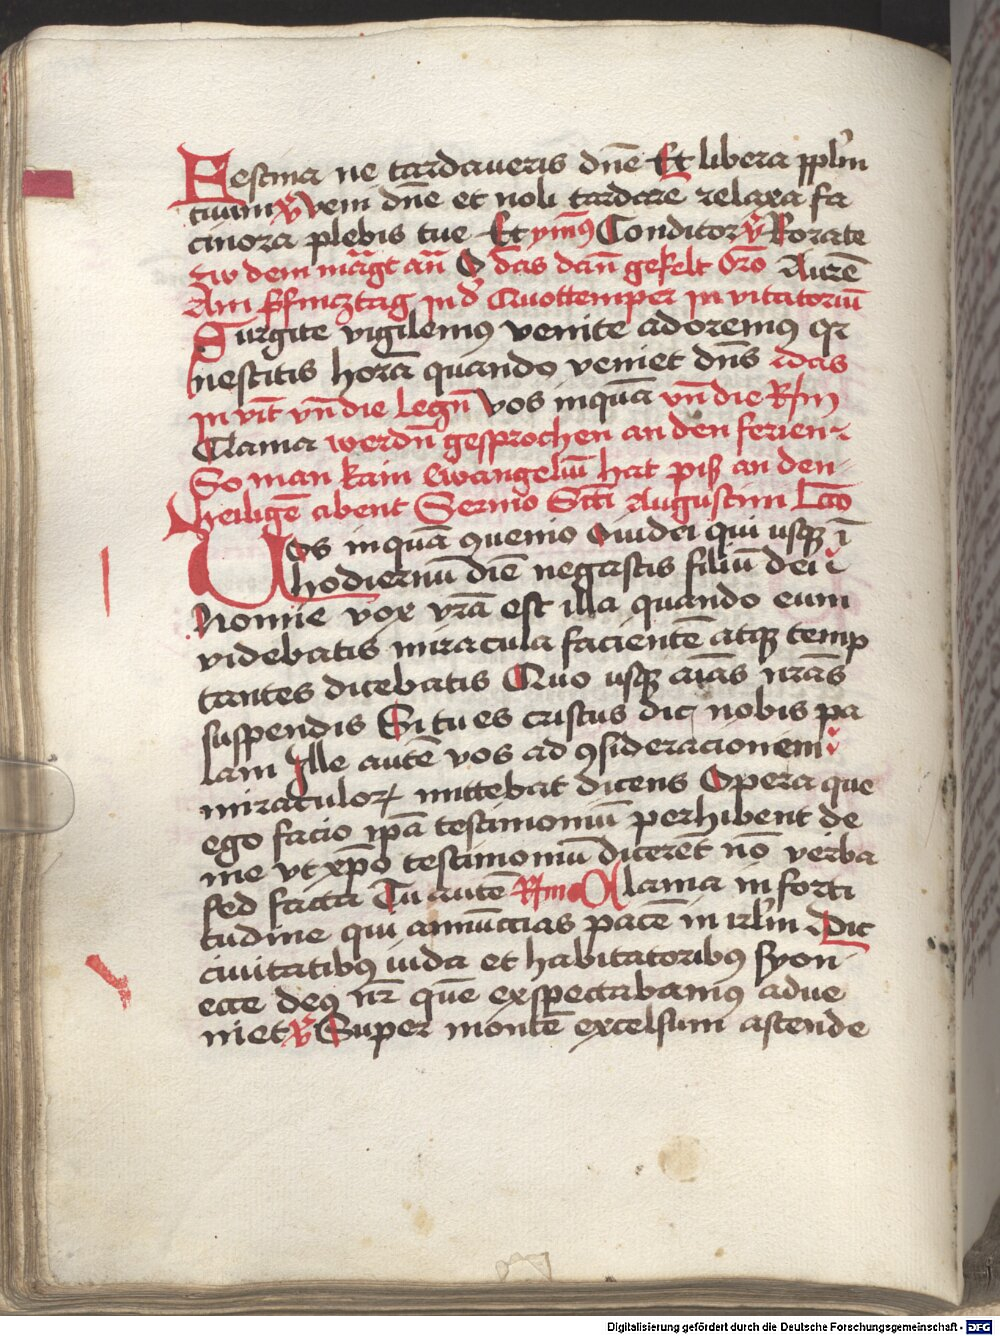 Festina ne tardaveris dn̄e Et libera pplm̄
tuum ℣ veni dn̄e et noli tardare relaxa fa
cinora plebis tue Et ymꝰ Conditor ℣ Rorate
zw dem mägt an̄ O das dan̄ gefelt Or̄o Aurē
Am pfincztag in d' Quottemper in vitatoriū
Surgite vigilemꝰ venite adoremꝰ qr
nescitis horā quando veniet dn̄s das
in vit̄ vn̄ die legn̄ vos inquā vn̄ die R/m
Clama werdn̄ gesprochen an den ferien
So man kain Ewangeliū hat piß an den
heiligē abent Sermo Scti Augustini Lc̄o
Vos inquā ꝯuenio O iudei qui usqꝫ ī
hodiernū diē negastis filiū dei
Nonne vox vr̄a est illa quando eum
videbatis miracula facientē atqꝫ temp
tantes dicebatis Quo usqꝫ aīas nr̄as
suspendis Si tu es cristus dic nobis pa
lam Ille autē vos ad ꝯsideracionem
miraculoꝝ mittebat dicens Opera que
ego facio ip̄a testimoniū perhibent de
me vt xp̄o testimoniū dicerēt nō verba
sed facta Tu autē R/m Clama in forti
tudine qui annūccias pacē in irlm̄ Dic
civitatibꝰ iuda et habitatoribꝰ syon
ecce deꝰ nr̄ quē exspectabamꝰ adue
niet ℣ Super montē excelsum ascende
Digitalisierung gefördert durch die Deutsche Forschungsgemeinschaft - DFG